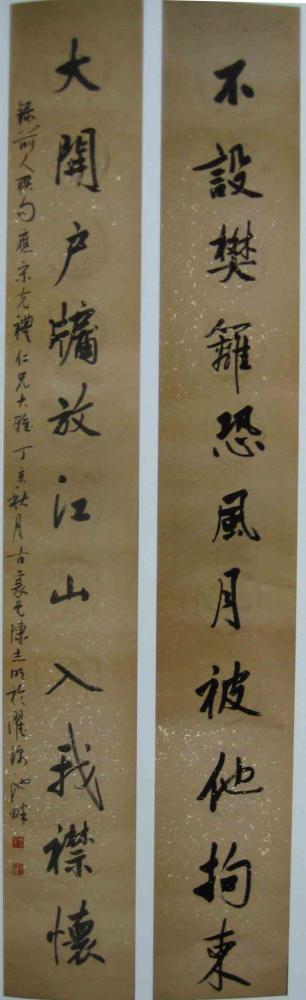 不設樊籬恐風月被他拘束
大開户牖放江山入我襟懷
錄前人聯句應宗克禮仁兄大雅丁亥秋月古襄
陳志明於濯錦池畔